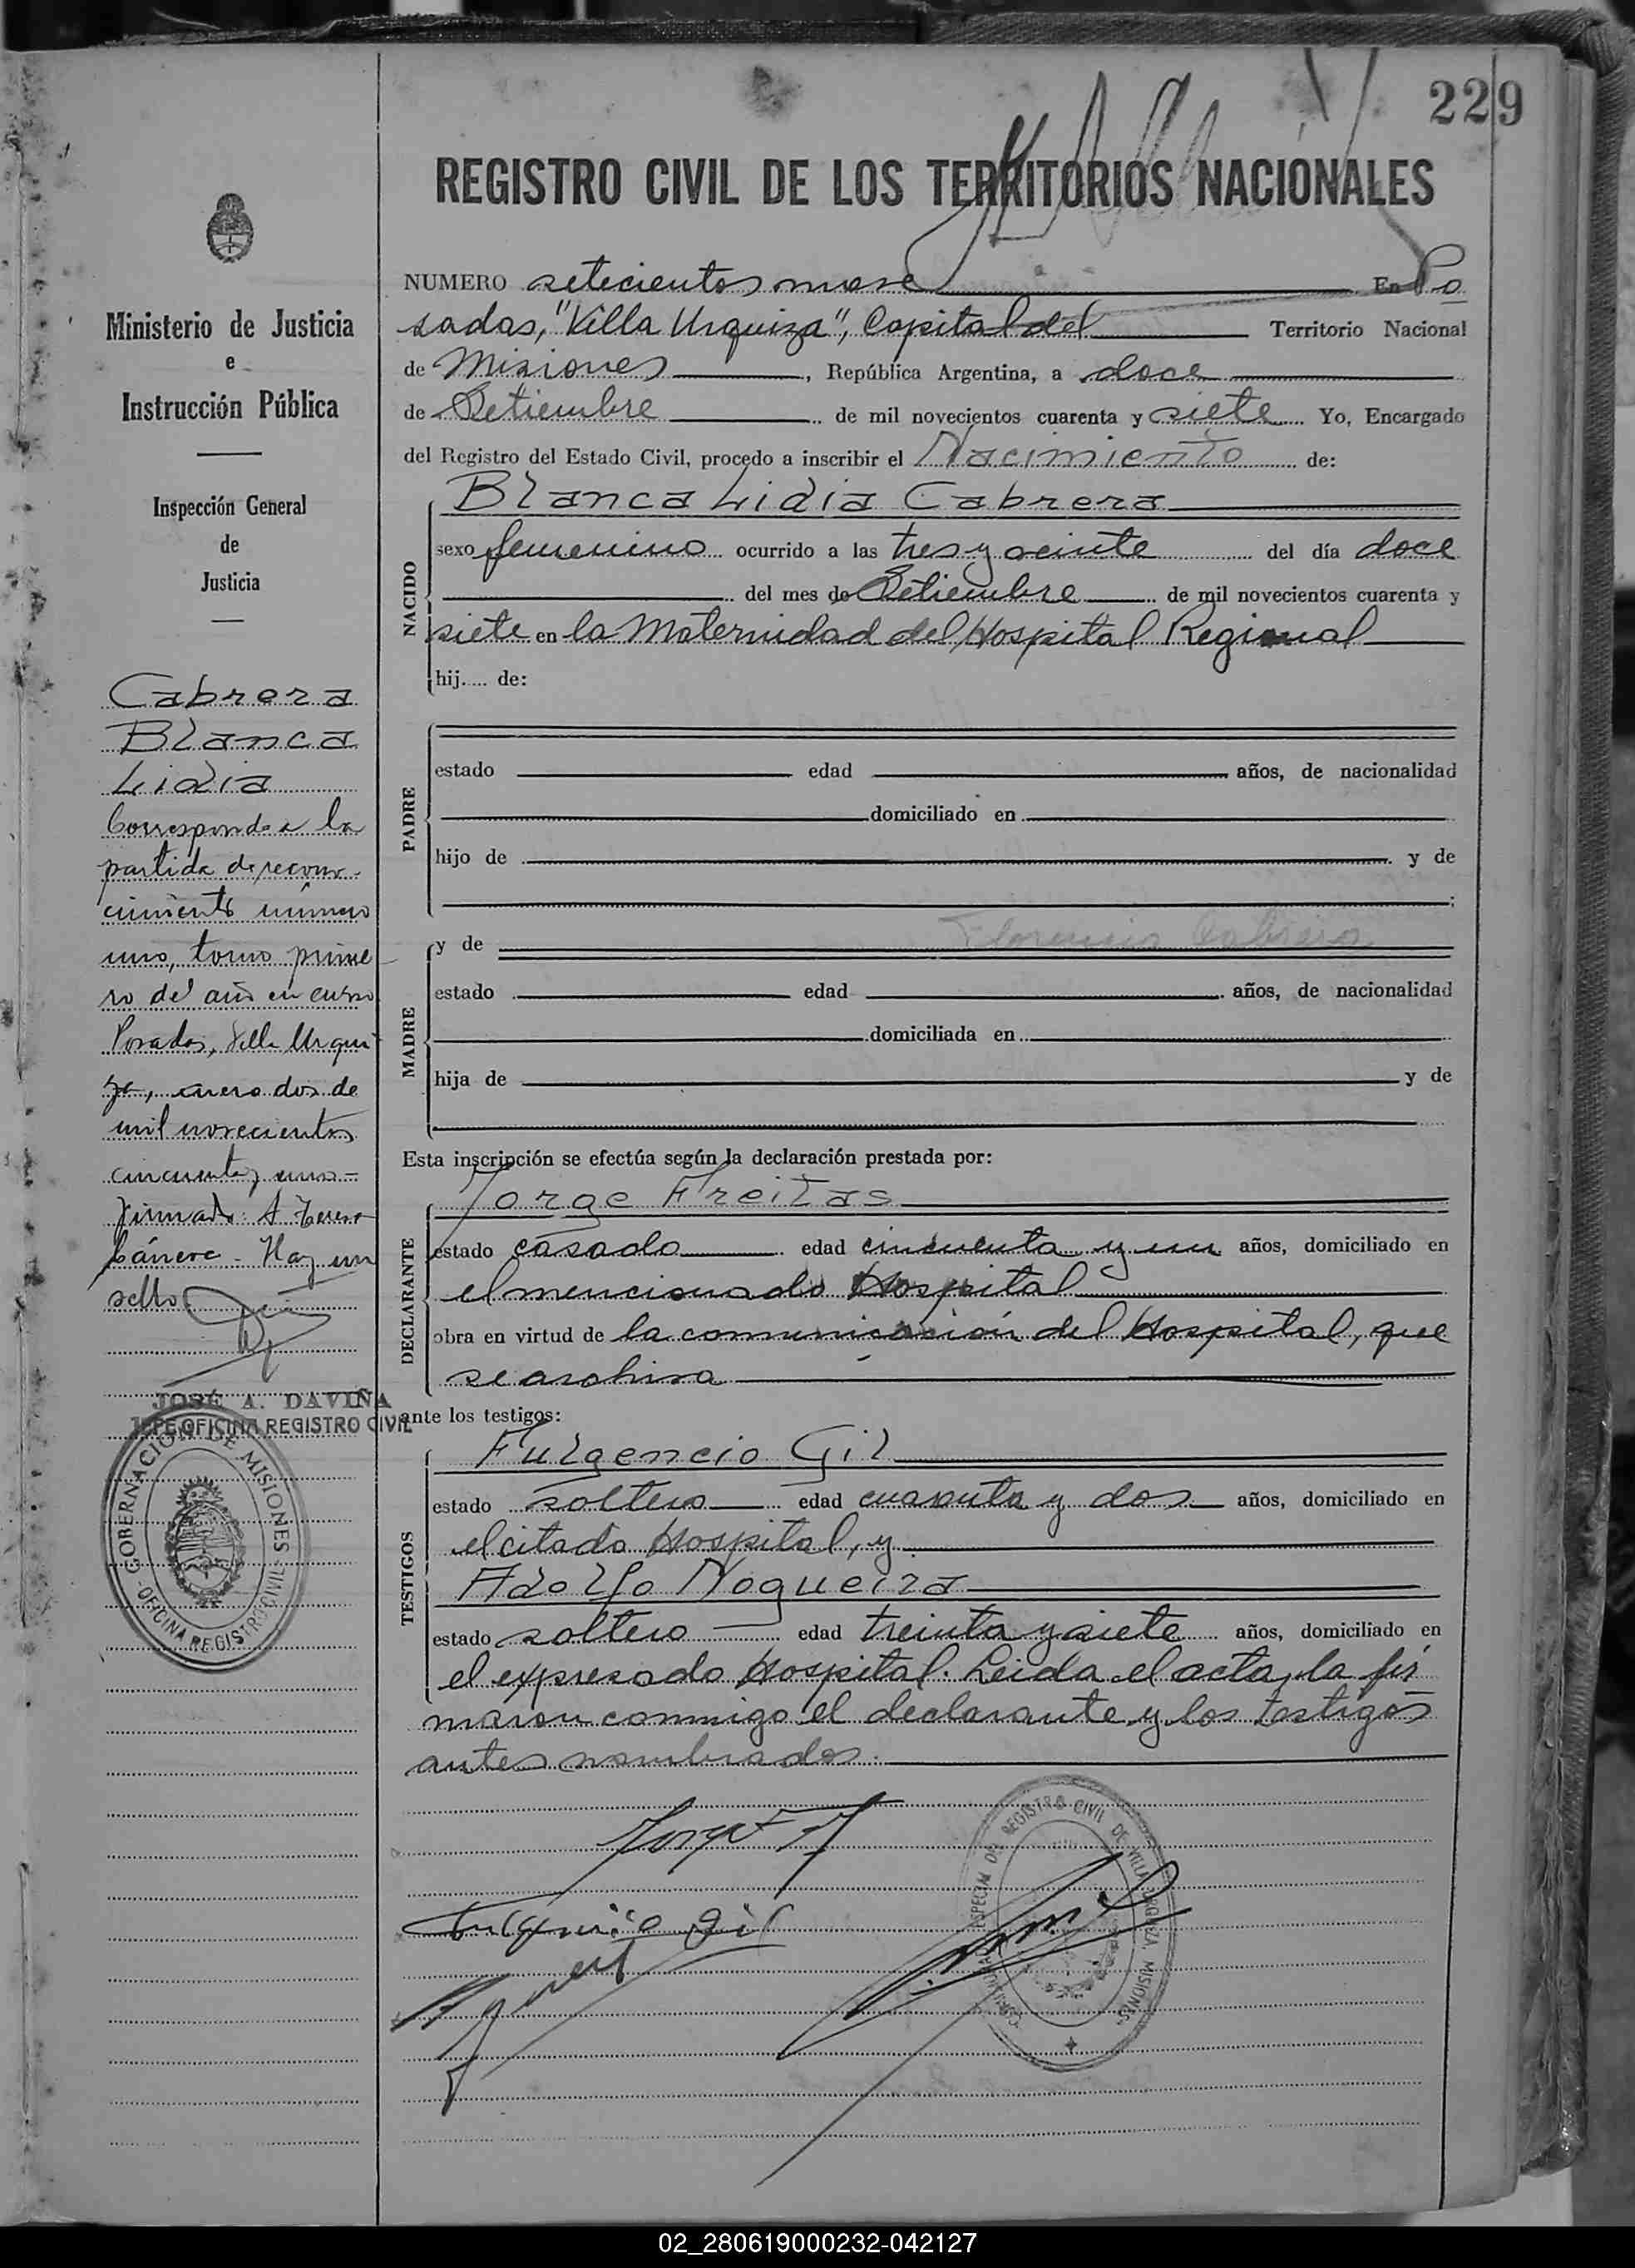 229
REGISTRO CIVIL DE LOS TERRITORIOS NACIONALES
NUMERO setecientos nueve En Po
sadas, "Villa Urquiza", Capital del Territorio Nacional
de Misiones, República Argentina, a doce
de Setiembre de mil novecientos cuarenta y siete Yo, Encargado
del Registro del Estado Civil, procedo a inscribir el Nacimiento de:
NACIDO
Blanca Lidia Cabrera
sexo femenino ocurrido a las tres y veinte del día doce
del mes de Setiembre de mil novecientos cuarenta y
siete en la Maternidad del Hospital Regional
hij.... de:
PADRE
estado edad años, de nacionalidad
domiciliado en
hijo de y de
MADRE
y de Florencia Cabrera
estado edad años, de nacionalidad
domiciliada en
hija de y de
Esta inscripción se efectúa según la declaración prestada por:
DECLARANTE
Jorge Freitas
estado casado edad cincuenta y un años, domiciliado en
el mencionado Hospital
obra en virtud de la comunicación del Hospital, que
se archiva
ante los testigos:
TESTIGOS
Fulgencio Gil
estado soltero edad cuarenta y dos años, domiciliado en
el citado Hospital, y
Adolfo Nogueira
estado soltero edad treinta y siete años, domiciliado en
el expresado Hospital. Leida el acta, la fir
maron conmigo el declarante y los testigos
antes nombrados.
Fulgencio Gil
REGISTRO CIVIL DE VILLA URQUIZA. MISIONES
Ministerio de Justicia
e
Instrucción Pública
Inspección General
de
Justicia
Cabrera
Blanca
Lidia
Corresponde a la
partida de recono-
cimiento número
uno, tomo prime
ro del año en curso
Posadas, Villa Urqui
za, enero dos de
mil novecientos
cincuenta y uno-
Firmado: A.
Hay un
sello
JOSÉ A. DAVIÑA
JEFE OFICINA REGISTRO CIVIL
GOBERNACION DE MISIONES
OFICINA REGISTRO CIVIL
02_280619000232-042127